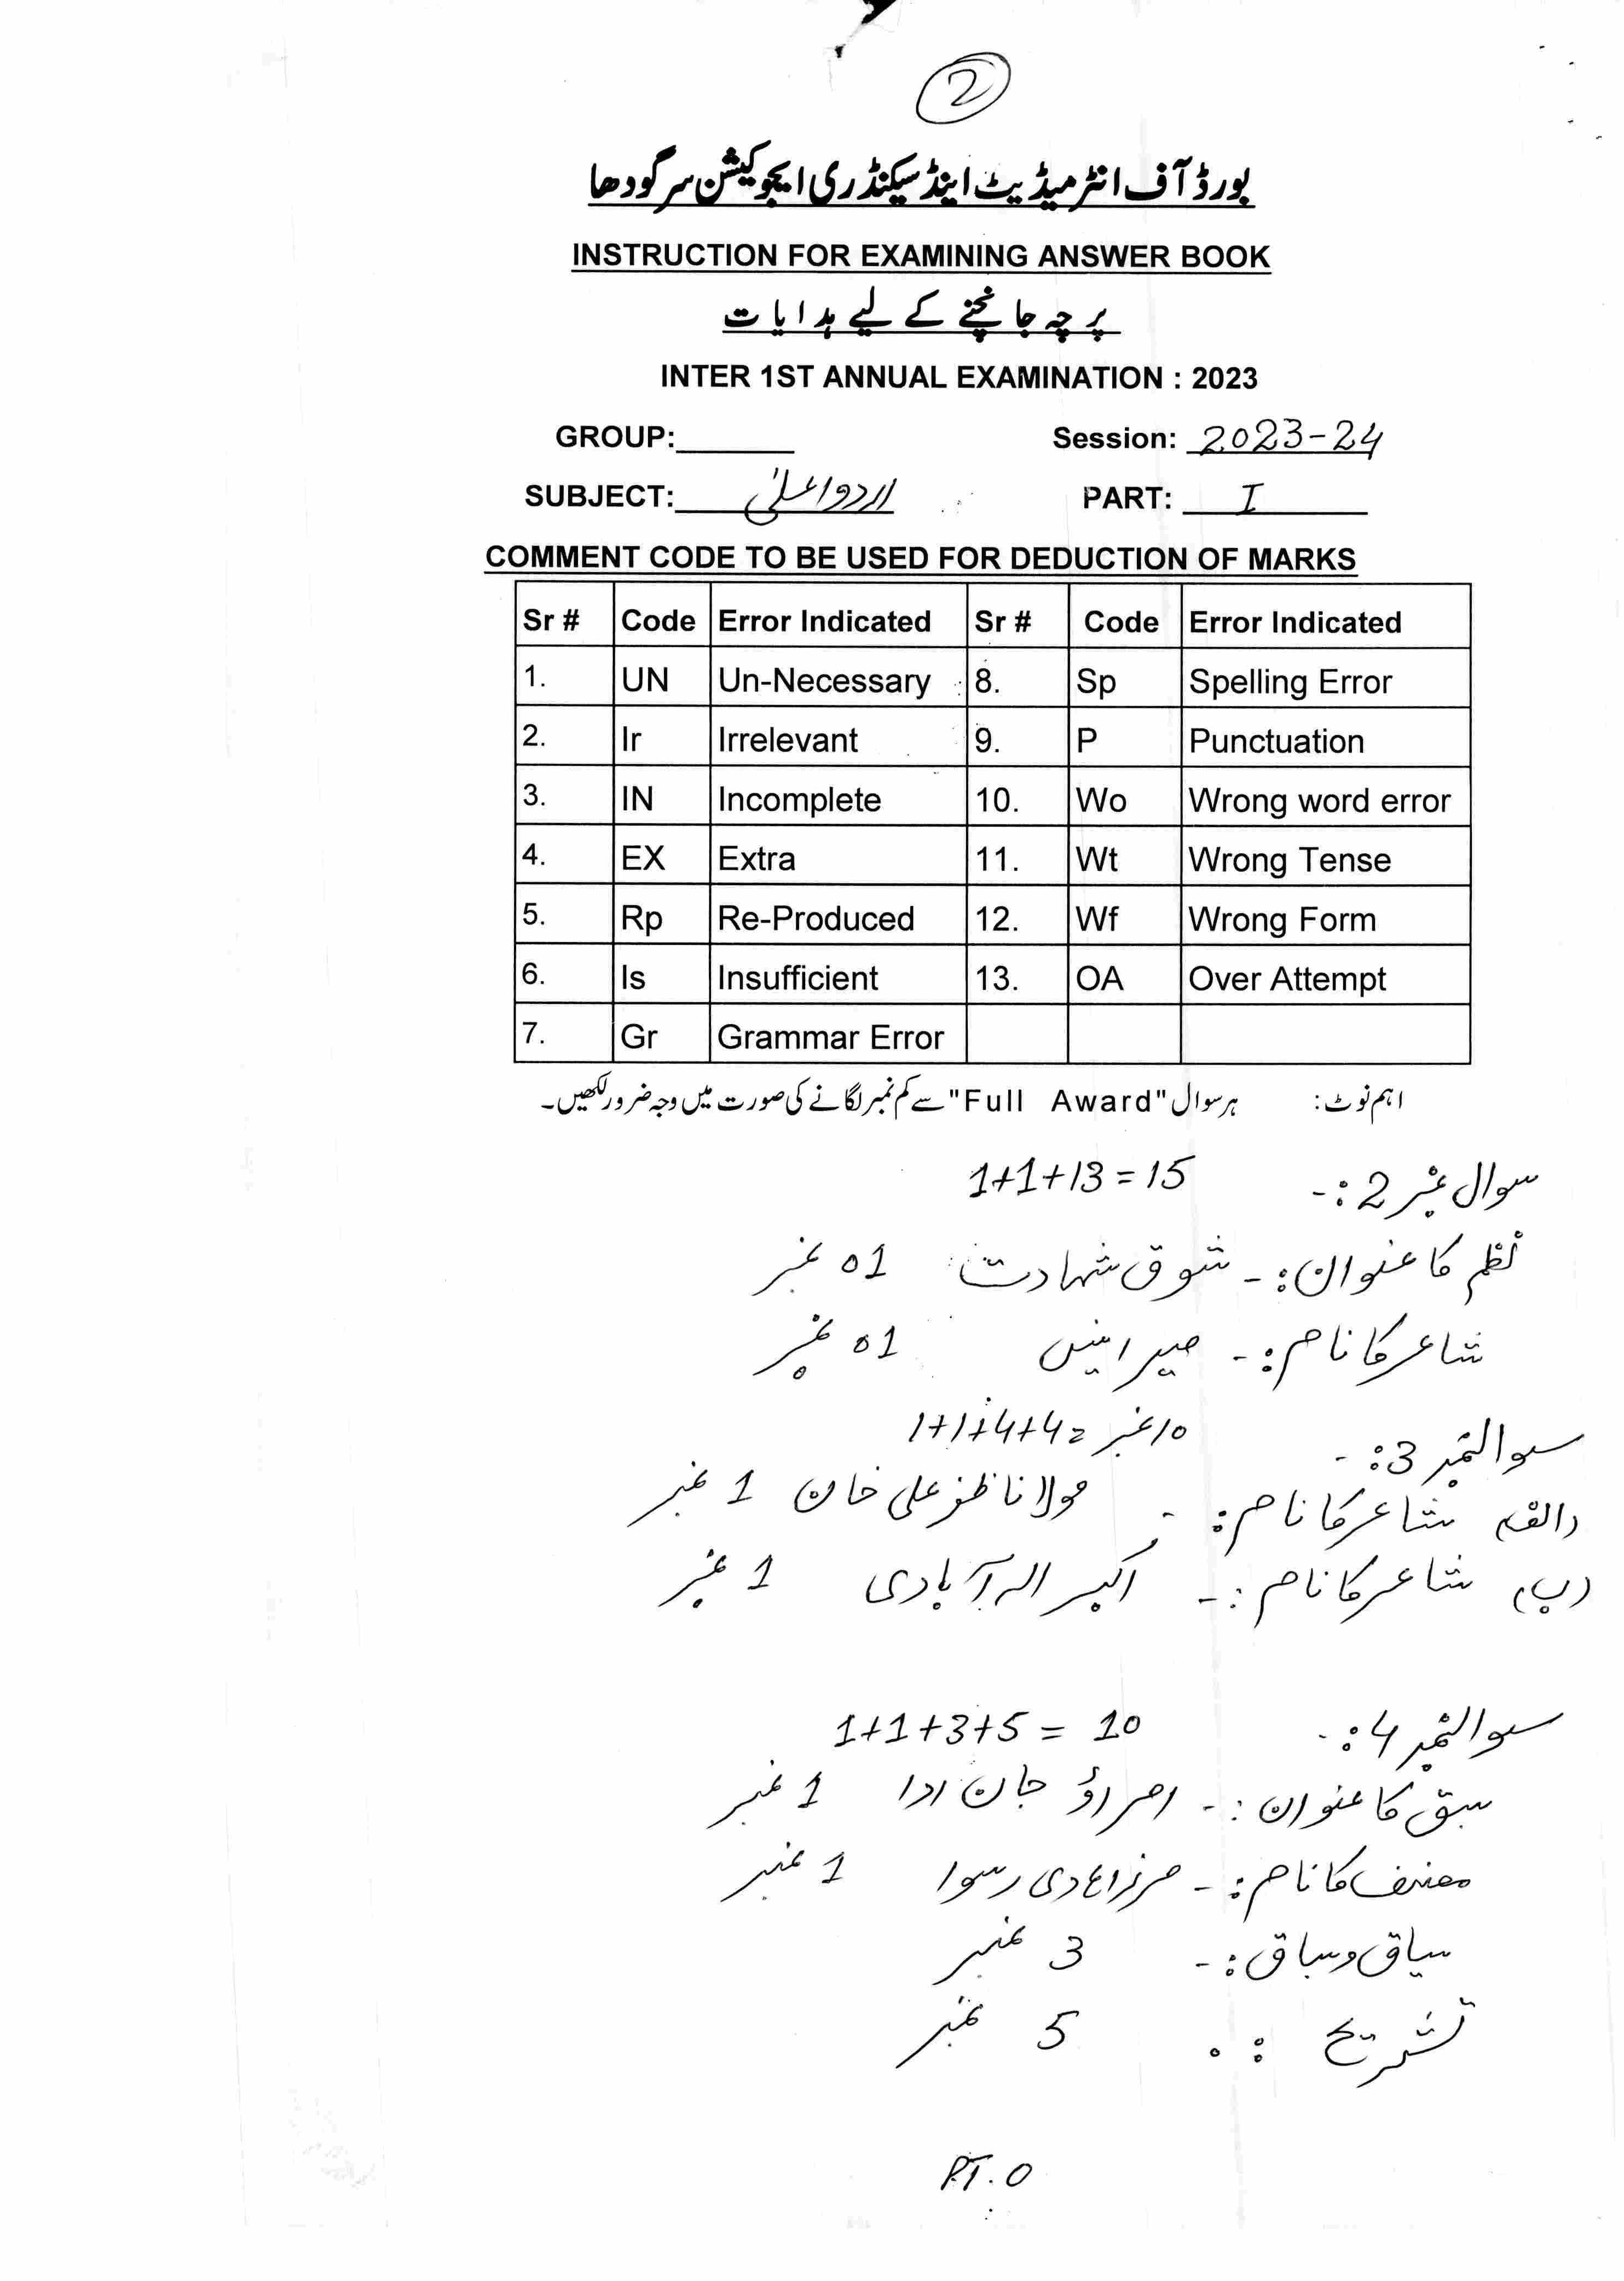 2
بورڈ آف انٹرمیڈیٹ اینڈ سیکنڈری ایجوکیشن سرگودھا
INSTRUCTION FOR EXAMINING ANSWER BOOK
پرچہ جانچنے کے لیے ہدایات
INTER 1ST ANNUAL EXAMINATION : 2023
GROUP: Session: 2023-24
SUBJECT: اردو اعلیٰ PART: I
COMMENT CODE TO BE USED FOR DEDUCTION OF MARKS
Sr # Code Error Indicated Sr # Code Error Indicated
1. UN Un-Necessary 8. Sp Spelling Error
2. Ir Irrelevant 9. P Punctuation
3. IN Incomplete 10. Wo Wrong word error
4. EX Extra 11. Wt Wrong Tense
5. Rp Re-Produced 12. Wf Wrong Form
6. Is Insufficient 13. OA Over Attempt
7. Gr Grammar Error
اہم نوٹ: ہر سوال "Full Award" سے کم نمبر لگانے کی صورت میں وجہ ضرور لکھیں۔
سوال نمبر 2:- 1+1+13=15
نظم کا عنوان:- شوق شہادت 01 نمبر
شاعر کا نام:- میر انیس 01 نمبر
سوال نمبر 3:- 1+1+4+4= 10 نمبر
(الف) شاعر کا نام:- مولانا ظفر علی خان 1 نمبر
(ب) شاعر کا نام:- اکبر الہ آبادی 1 نمبر
سوال نمبر 4:- 1+1+3+5 = 10
سبق کا عنوان:- امراؤ جان ادا 1 نمبر
مصنف کا نام:- مرزا ہادی رسوا 1 نمبر
سیاق و سباق:- 3 نمبر
تشریح :. 5 نمبر
P.T.O